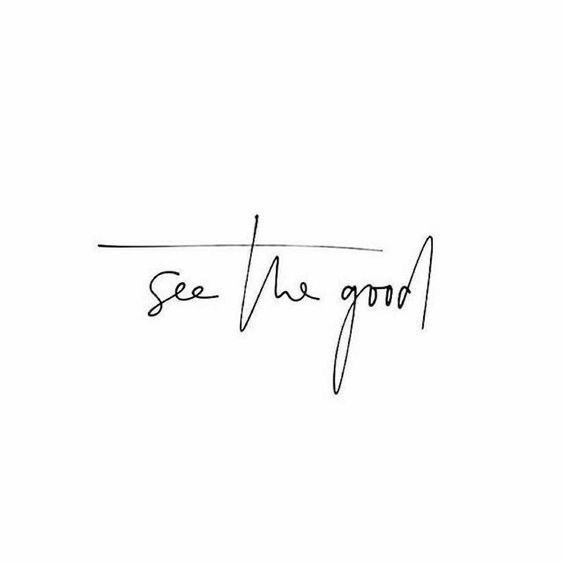 see the good